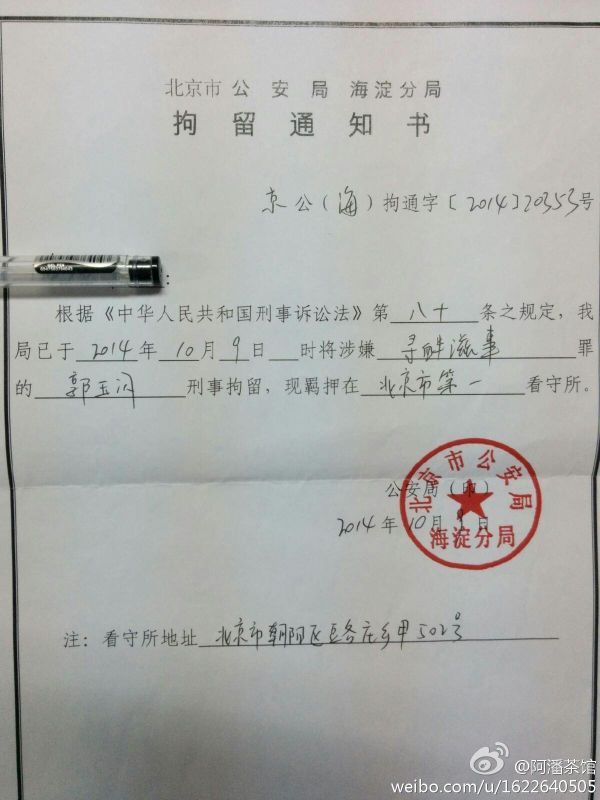 北京市公安局海淀分局
拘留通知书
京公(海)拘通字〔2014〕20353号
根据《中华人民共和国刑事诉讼法》第八十条之规定,我
局已于2014年10月9日 时将涉嫌寻衅滋事罪
的郭玉闪刑事拘留,现羁押在北京市第一看守所。
公安局(印)
2014年10月9日
北京市公安局
海淀分局
注:看守所地址北京市朝阳区豆各庄乡甲502号
@阿潘茶馆
weibo.com/u/1622640505